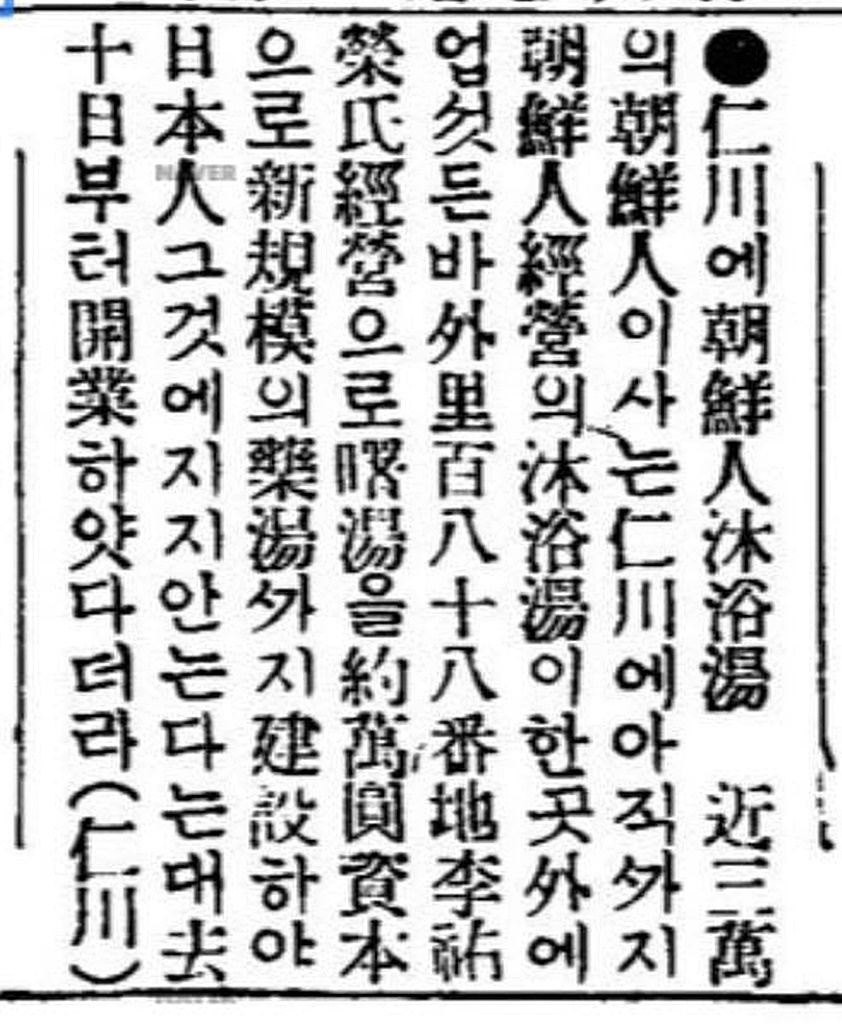 ●仁川에朝鮮人沐浴湯 近三萬
의朝鮮人이사는仁川에아직ᄭᅡ지
朝鮮人經營의沐浴湯이한곳外에
업섯든바外里百八十八番地李祐
榮氏經營으로曙湯을約萬圓資本
으로新規模의藥湯ᄭᅡ지建設하야
日本人그것에지지안는다는대去
十日부터開業하얏다더라(仁川)
NAVER